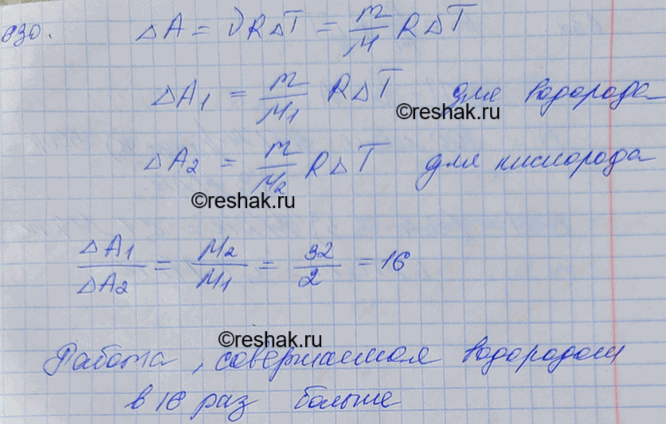 830. ΔA = νRΔT = m/M RΔT
ΔA1 = m/M1 RΔT для водорода
©reshak.ru
ΔA2 = m/M2 RΔT для кислорода
©reshak.ru
ΔA1/ΔA2 = M2/M1 = 32/2 = 16
©reshak.ru
Работа, совершаемая водородом
в 16 раз больше